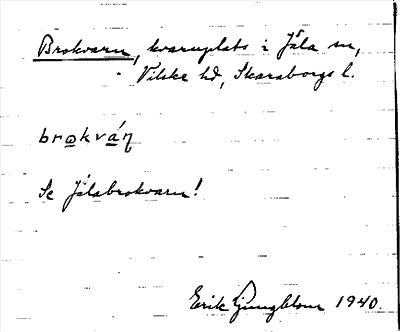 Brokvarn, kvarnplats i Jåla sn,
Vilske hd, Skaraborgs l.
brokván
Se Jålabrokvarn!
Erik Ljungblom 1940.